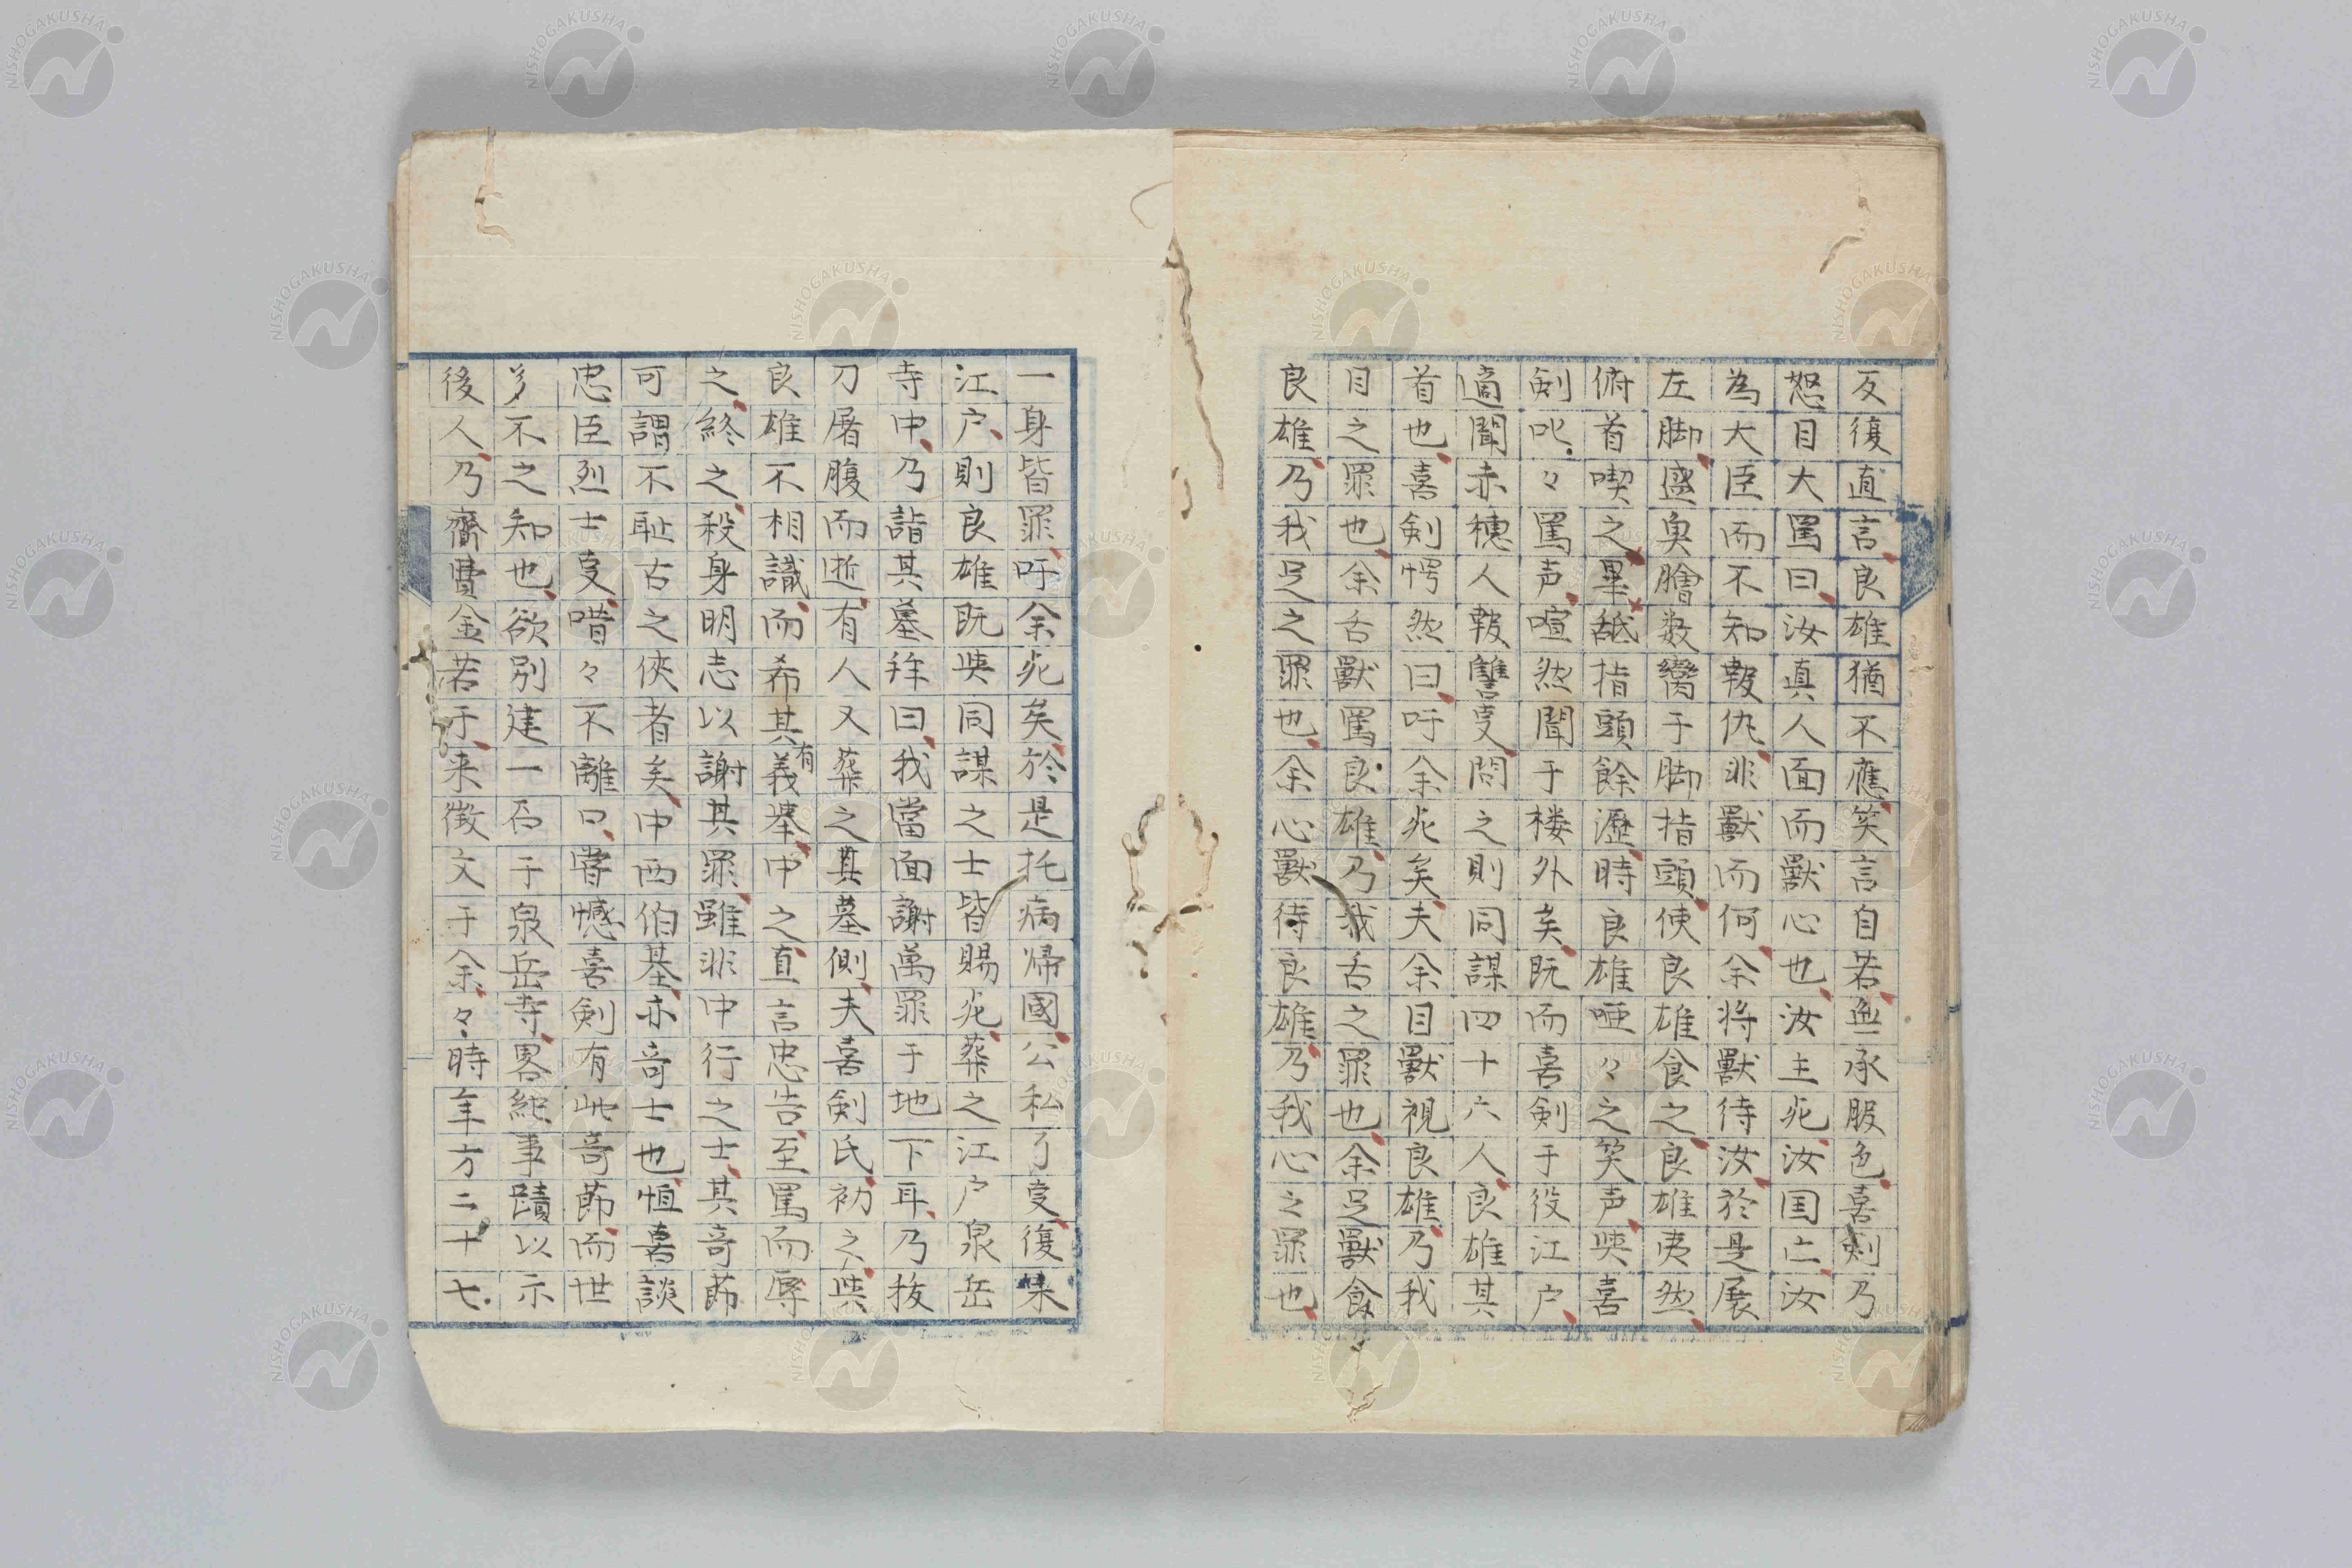 反復直言良雄猶不應笑言自若無承服色喜剣乃
怒目大罵曰汝真人面而獣心也汝主死汝国亡汝
為大臣而不知報仇非獣而何余将獣待汝於是展
左脚盛魚膾数臠于脚指頭使良雄食之良雄夷然
俯首喫之畢舐指頭餘瀝時良雄唖々之笑声与喜
剣叱々罵声喧然聞于楼外矣既而喜剣于役江戸
適聞赤穂人報讐事問之則同謀四十六人良雄其
首也喜剣愕然曰吁余死矣夫余目獣視良雄乃我
目之罪也余舌獣罵良雄乃我舌之罪也余足獣食
良雄乃我足之罪也余心獣待良雄乃我心之罪也
一身皆罪吁余死矣於是托病帰國公私了事復来
江戸則良雄既與同謀之士皆賜死葬之江戸泉岳
寺中乃詣其墓拝曰我當面謝萬罪于地下耳乃抜
刀屠腹而逝有人又葬之其墓側夫喜剣氏初之與
良雄不相識而希其有義挙中之直言忠告至罵而辱
之終之殺身明志以謝其罪雖非中行之士其奇節
可謂不耻古之侠者矣中西伯基亦奇士也恒喜談
忠臣烈士事喈々不離口嘗憾喜剣有此奇節而世
多不之知也欲別建一石于泉岳寺畧紀事蹟以示
後人乃齎費金若干来徴文于余々時年方二十七